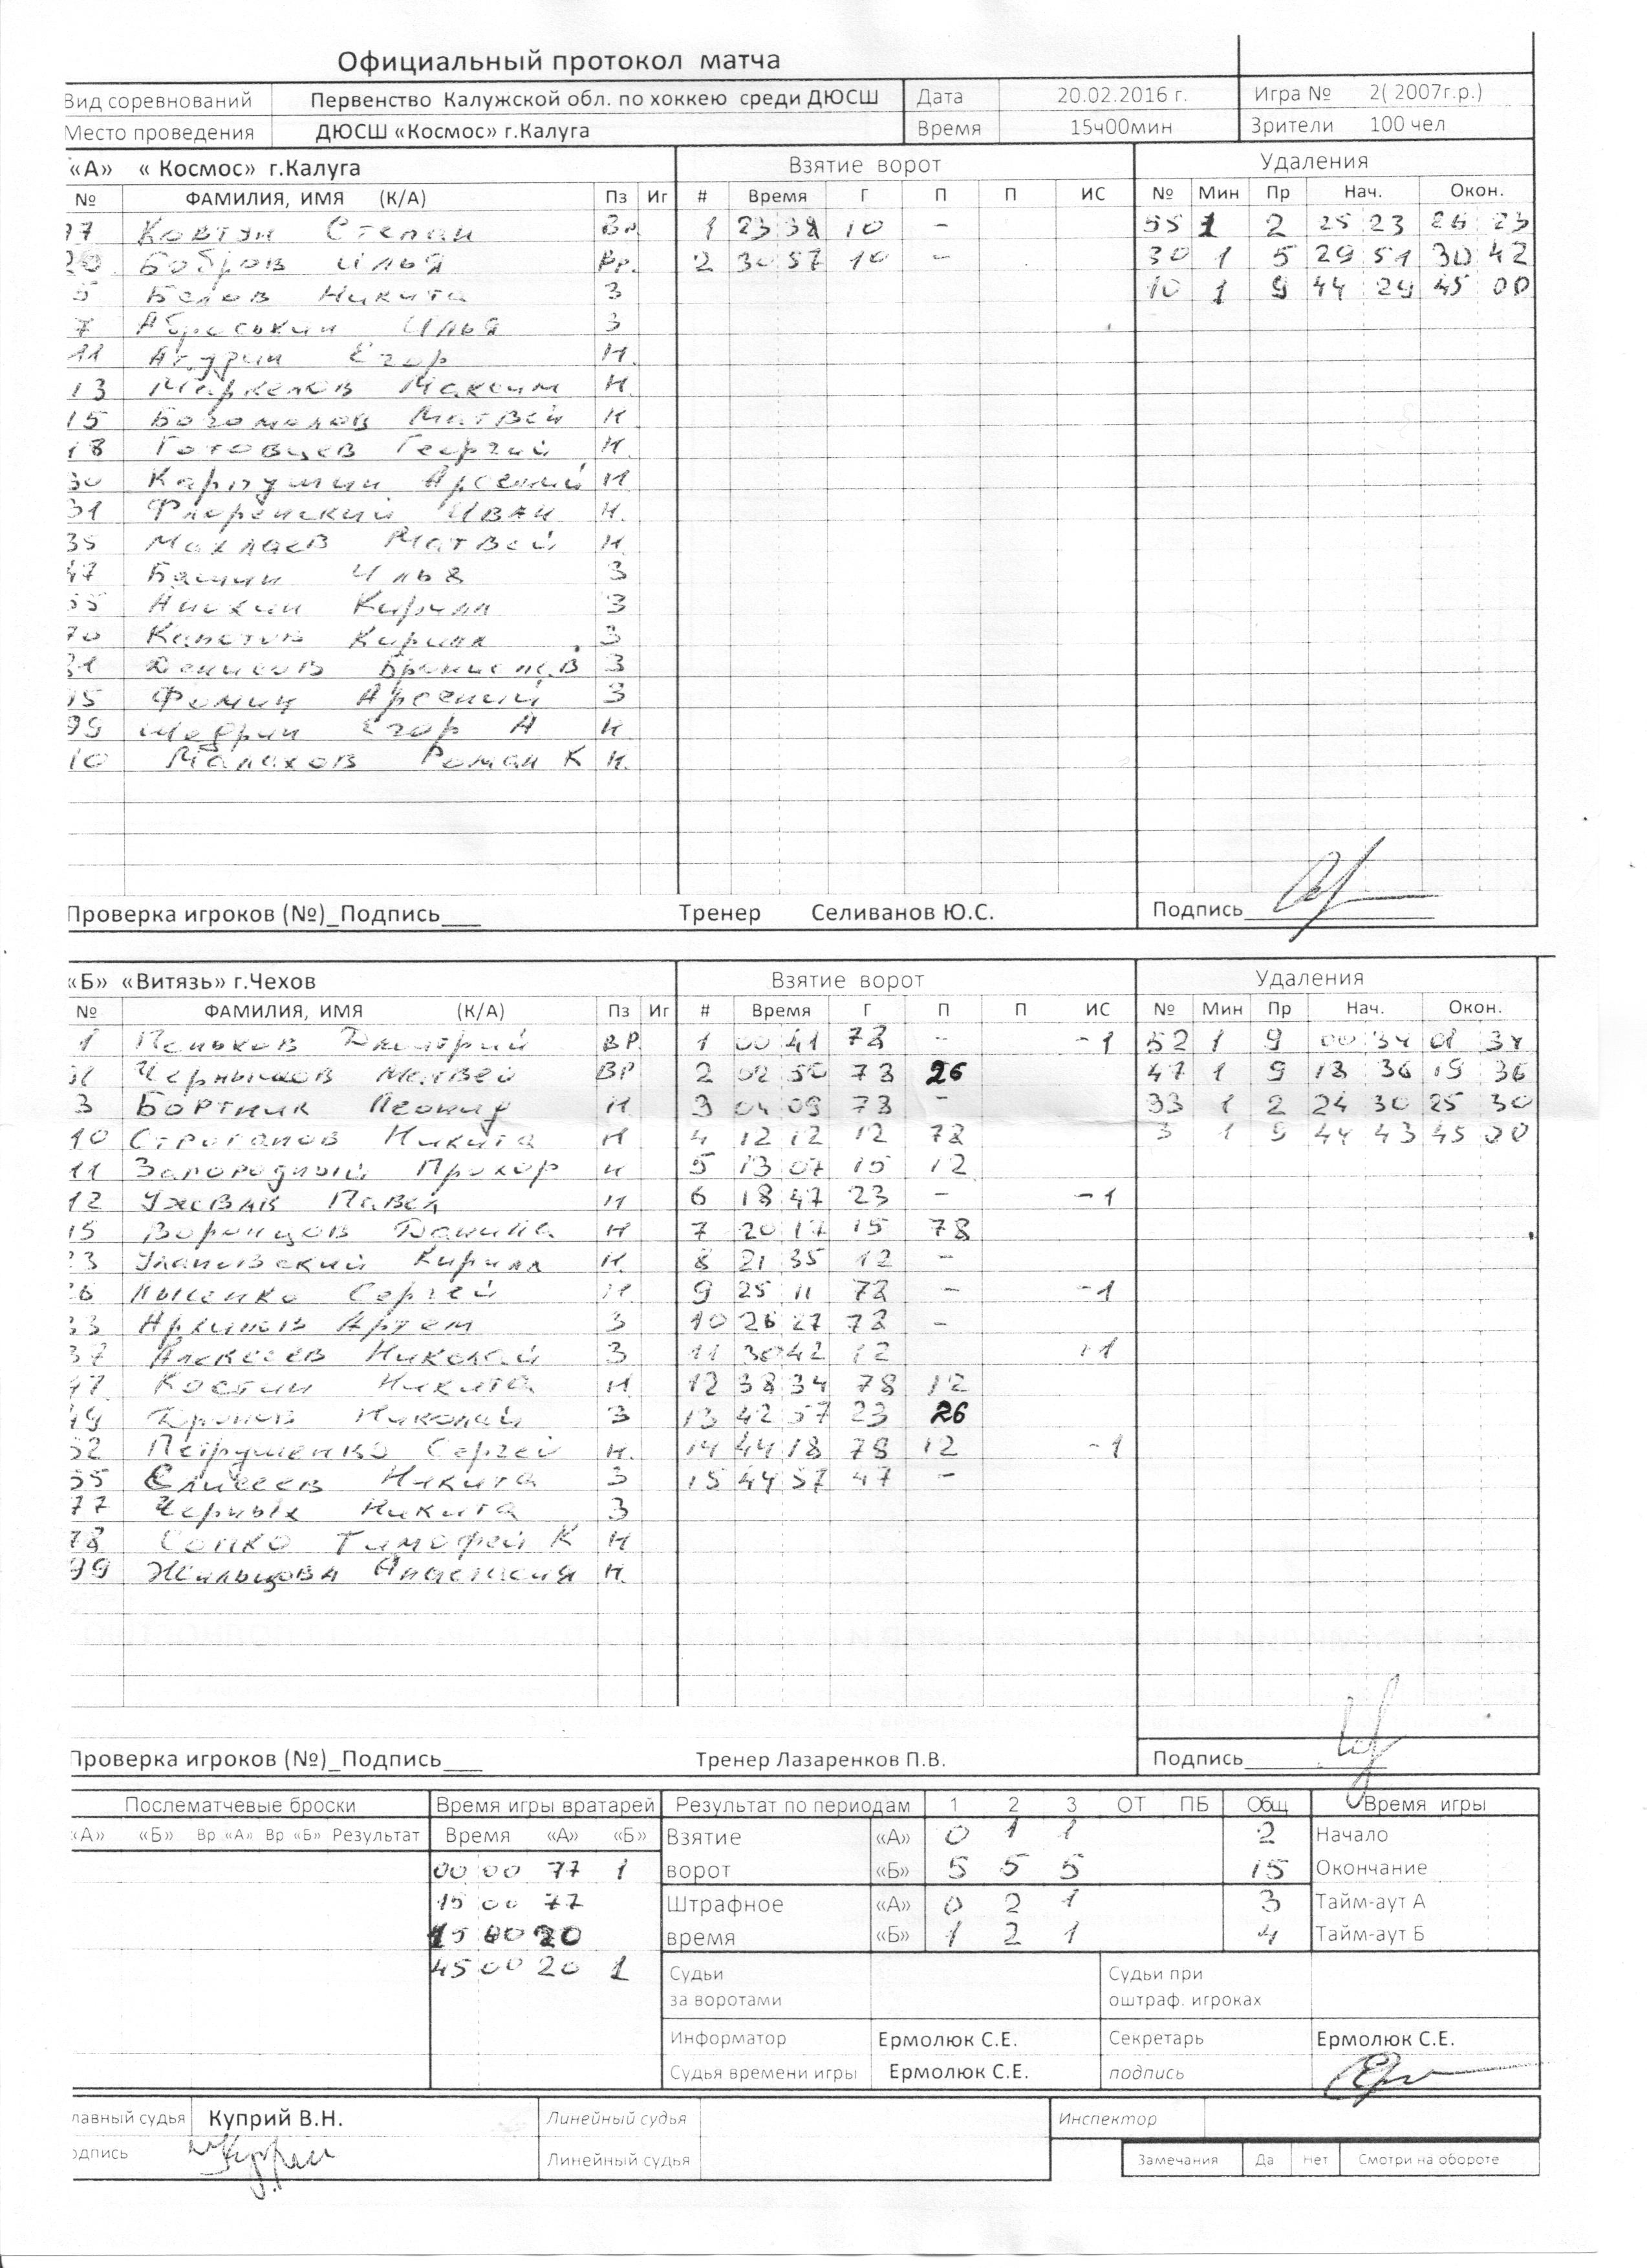 Официальный протокол матча
Вид соревнований Первенство Калужской обл. по хоккею среди ДЮСШ Дата 20.02.2016 г. Игра № 2( 2007г.р.)
Место проведения ДЮСШ «Космос» г.Калуга Время 15ч00мин Зрители 100 чел
«А» « Космос» г.Калуга Взятие ворот Удаления
№ ФАМИЛИЯ, ИМЯ (К/А) Пз Иг # Время Г П П ИС № Мин Пр Нач. Окон.
77 Ковтун Степан Вр. 1 23 38 10 - 55 1 2 25 23 26 23
20 Бобров Илья Вр. 2 30 57 10 - 30 1 5 29 51 30 42
5 Белов Никита З 10 1 9 44 29 45 00
7 Аброськин Илья З
11 Егор Н.
13 Маркелов Максим Н
15 Богомолов Матвей Н
18 Готовцев Георгий Н.
30 Карпушин Арсений Н
31 Флоренский Иван Н.
35 Махлаев Матвей Н
47 Башин Илья З
55 Анихин Кирилл З
70 Кирилл З
Денисов З
Фомин Арсений З
99 Шедрин Егор А Н
10 Малахов Роман К Н.
Проверка игроков (№)_Подпись___ Тренер Селиванов Ю.С. Подпись
«Б» «Витязь» г.Чехов Взятие ворот Удаления
№ ФАМИЛИЯ, ИМЯ (К/А) Пз Иг # Время Г П П ИС № Мин Пр Нач. Окон.
1 Пеньков Дмитрий ВР. 1 00 41 78 - -1 52 1 9 00 34 01 34
Чернышов Матвей ВР 2 02 50 78 26 47 1 9 18 36 19 36
3 Бортник Леонид Н 3 04 09 78 - 33 1 2 24 30 25 30
10 Строганов Никита Н 4 12 12 12 78 3 1 9 44 43 45 00
11 Загородный Прохор Н 5 13 07 15 12
12 Ужевак Павел Н 6 18 47 23 - -1
15 Воронцов Данила Н 7 20 17 15 78
23 Улановский Кирилл Н. 8 21 35 12 -
26 Лысенко Сергей Н. 9 25 11 78 - -1
33 Архипов Артем З 10 26 27 78 -
37 Алексеев Николай З 11 30 42 12 +1
47 Костин Никита Н 12 38 34 78 12
49 Дронов Николай З 13 42 57 23 26
52 Петрушенко Сергей Н. 14 44 18 78 12 -1
55 Елисеев Никита З 15 44 57 47 -
77 Черных Никита З
78 Сопко Тимофей К Н
99 Жильцова Анастасия Н.
Проверка игроков (№)_Подпись___ Тренер Лазаренков П.В. Подпись
Послематчевые броски Время игры вратарей Результат по периодам 1 2 3 ОТ ПБ Общ Время игры
«А» «Б» Вр «А» Вр «Б» Результат Время «А» «Б» Взятие «А» 0 1 1 2 Начало
00 00 77 1 ворот «Б» 5 5 5 15 Окончание
15 00 77 Штрафное «А» 0 2 1 3 Тайм-аут А
15 00 20 время «Б» 1 2 1 4 Тайм-аут Б
45 00 20 1 Судьи Судьи при
за воротами оштраф. игроках
Информатор Ермолюк С.Е. Секретарь Ермолюк С.Е.
Судья времени игры Ермолюк С.Е. подпись
лавный судья Куприй В.Н. Линейный судья Инспектор
одпись Линейный судья Замечания Да Нет Смотри на обороте